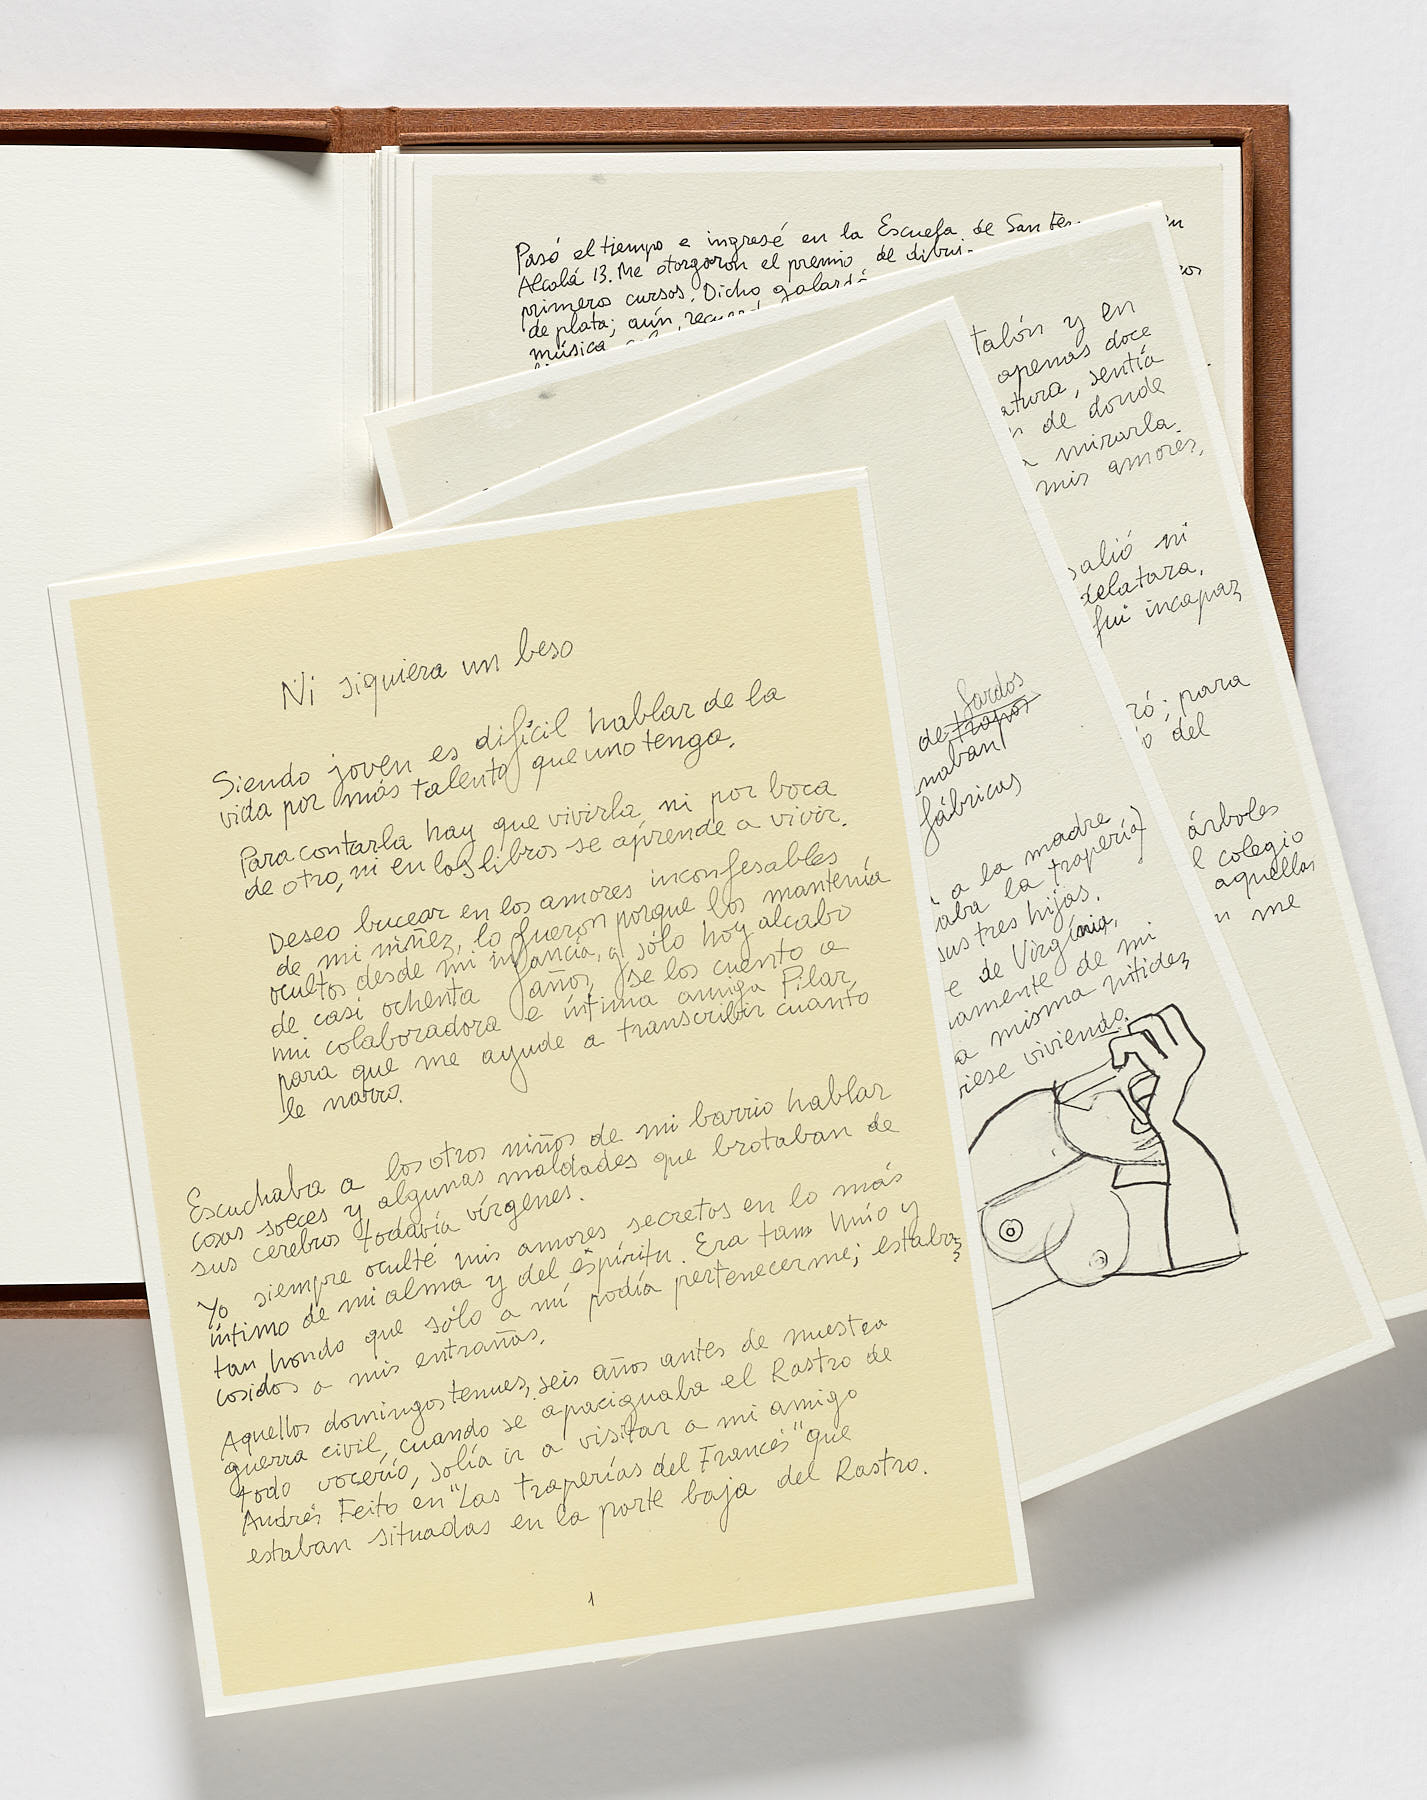 Ni siquiera un beso
Siendo joven es difícil hablar de la
vida por más talento que uno tenga.
Para contarla hay que vivirla, ni por boca
de otro, ni en los libros se aprende a vivir.
Deseo bucear en los amores inconfesables
de mi niñez, lo fueron porque los mantenía
ocultos desde mi infancia, y sólo hoy al cabo
de casi ochenta años, se los cuento a
mi colaboradora e íntima amiga Pilar,
para que me ayude a transcribir cuanto
le narro.
Escuchaba a los otros niños de mi barrio hablar
cosas soeces y algunas maldades que brotaban de
sus cerebros todavía vírgenes.
Yo siempre oculté mis amores secretos en lo más
íntimo de mi alma y del espíritu. Era tan mío y
tan hondo que sólo a mí podía pertenecerme; estaba
cosidos a mis entrañas.
Aquellos domingos tenues, seis años antes de nuestra
guerra civil, cuando se apaciguaba el Rastro de
todo vocerío, solía ir a visitar a mi amigo
Andrés Feito en "Las traperías del Francés" que
estaban situadas en la parte baja del Rastro.
1
fardos
de trapos
naban
fábricas
a la madre
aba la trapería)
sus tres hijas.
e de Virginia,
amente de mi
a misma nitidez
viese viviendo.
talón y en
apenas doce
atura, sentía
n de donde
a mirarla.
mis amores,
salió ni
delatara,
fui incapaz
ró; para
o del
árboles
l colegio
aquellas
n me
Pasó el tiempo e ingresé en la Escuela de San
Alcalá 13. Me otorgaron el premio de dibu
primeros cursos. Dicho galard
de plata; aún recuer
música